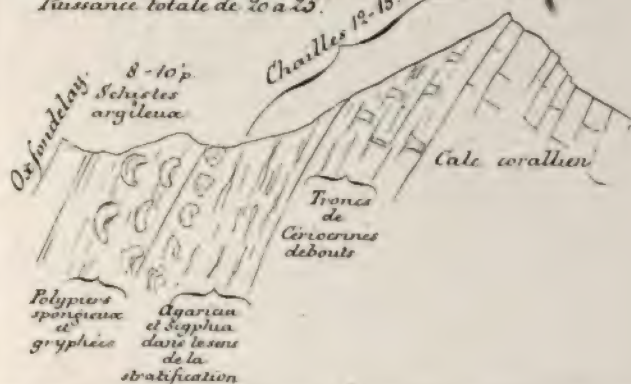 Puissance totale de 20 a 25.
Chailles 12-15.
8-10 p.
Schistes
argileux
Oxfordclay.
Calc corallien
Troncs
de
Cériocrines
debouts
Polypiers
spongieux
et
gryphées
Agaricia
et Sigphia
dans le sens
de la
stratification